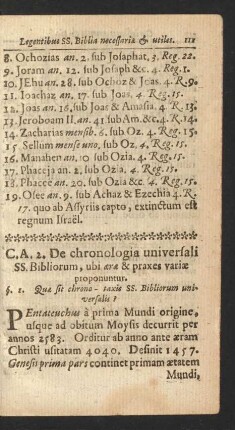 Legentibus SS. Biblia necessariæ & utiles. 111
8. Ochozias an. 2. sub Josaphat, 3. Reg. 22.
9. Joram an. 12. sub Josaph &c. 4. Reg. 1.
10. JEhu an. 28. sub Ochoz & Joas. 4. R. 9.
11. Ioachaz an. 17. sub Joas. 4. Reg.
12. Joas an. 16. sub Joas & Amasia. 4 R. 13.
13. Jeroboam II. an. 41 sub Am. &c. 4. R. 14.
14. Zacharias mensib. 6. sub Oz. 4. Reg. 15.
15 Sellum mense uno, sub Oz. 4. Reg. 15.
16. Manahen an. 10 sub Ozia. 4. Reg. 15.
17. Phaceja an. 2. sub Ozia. 4. Reg. 15.
18. Phacee an. 20. sub Ozia &c. 4. Reg. 15.
19. Osee an. 9. sub Achaz & Ezechia 4. R.
17. quo ab Assyriis capto, extinctum est
regnum Israël.
C.A. 2. De chronologia universali
SS. Bibliorum, ubi æræ & praxes variæ
proponuntur.
§. 1. Quæ sit chrono-taxis SS. Bibliorum uni-
versalis?
PEntateuchus à prima Mundi origine,
usque ad obitum Moysis decurrit per
annos 2583. Orditur ab anno ante æram
Christi usitatam 4040. Desinit 1457.
Genesis prima pars continet primam ætatem
Mundi,